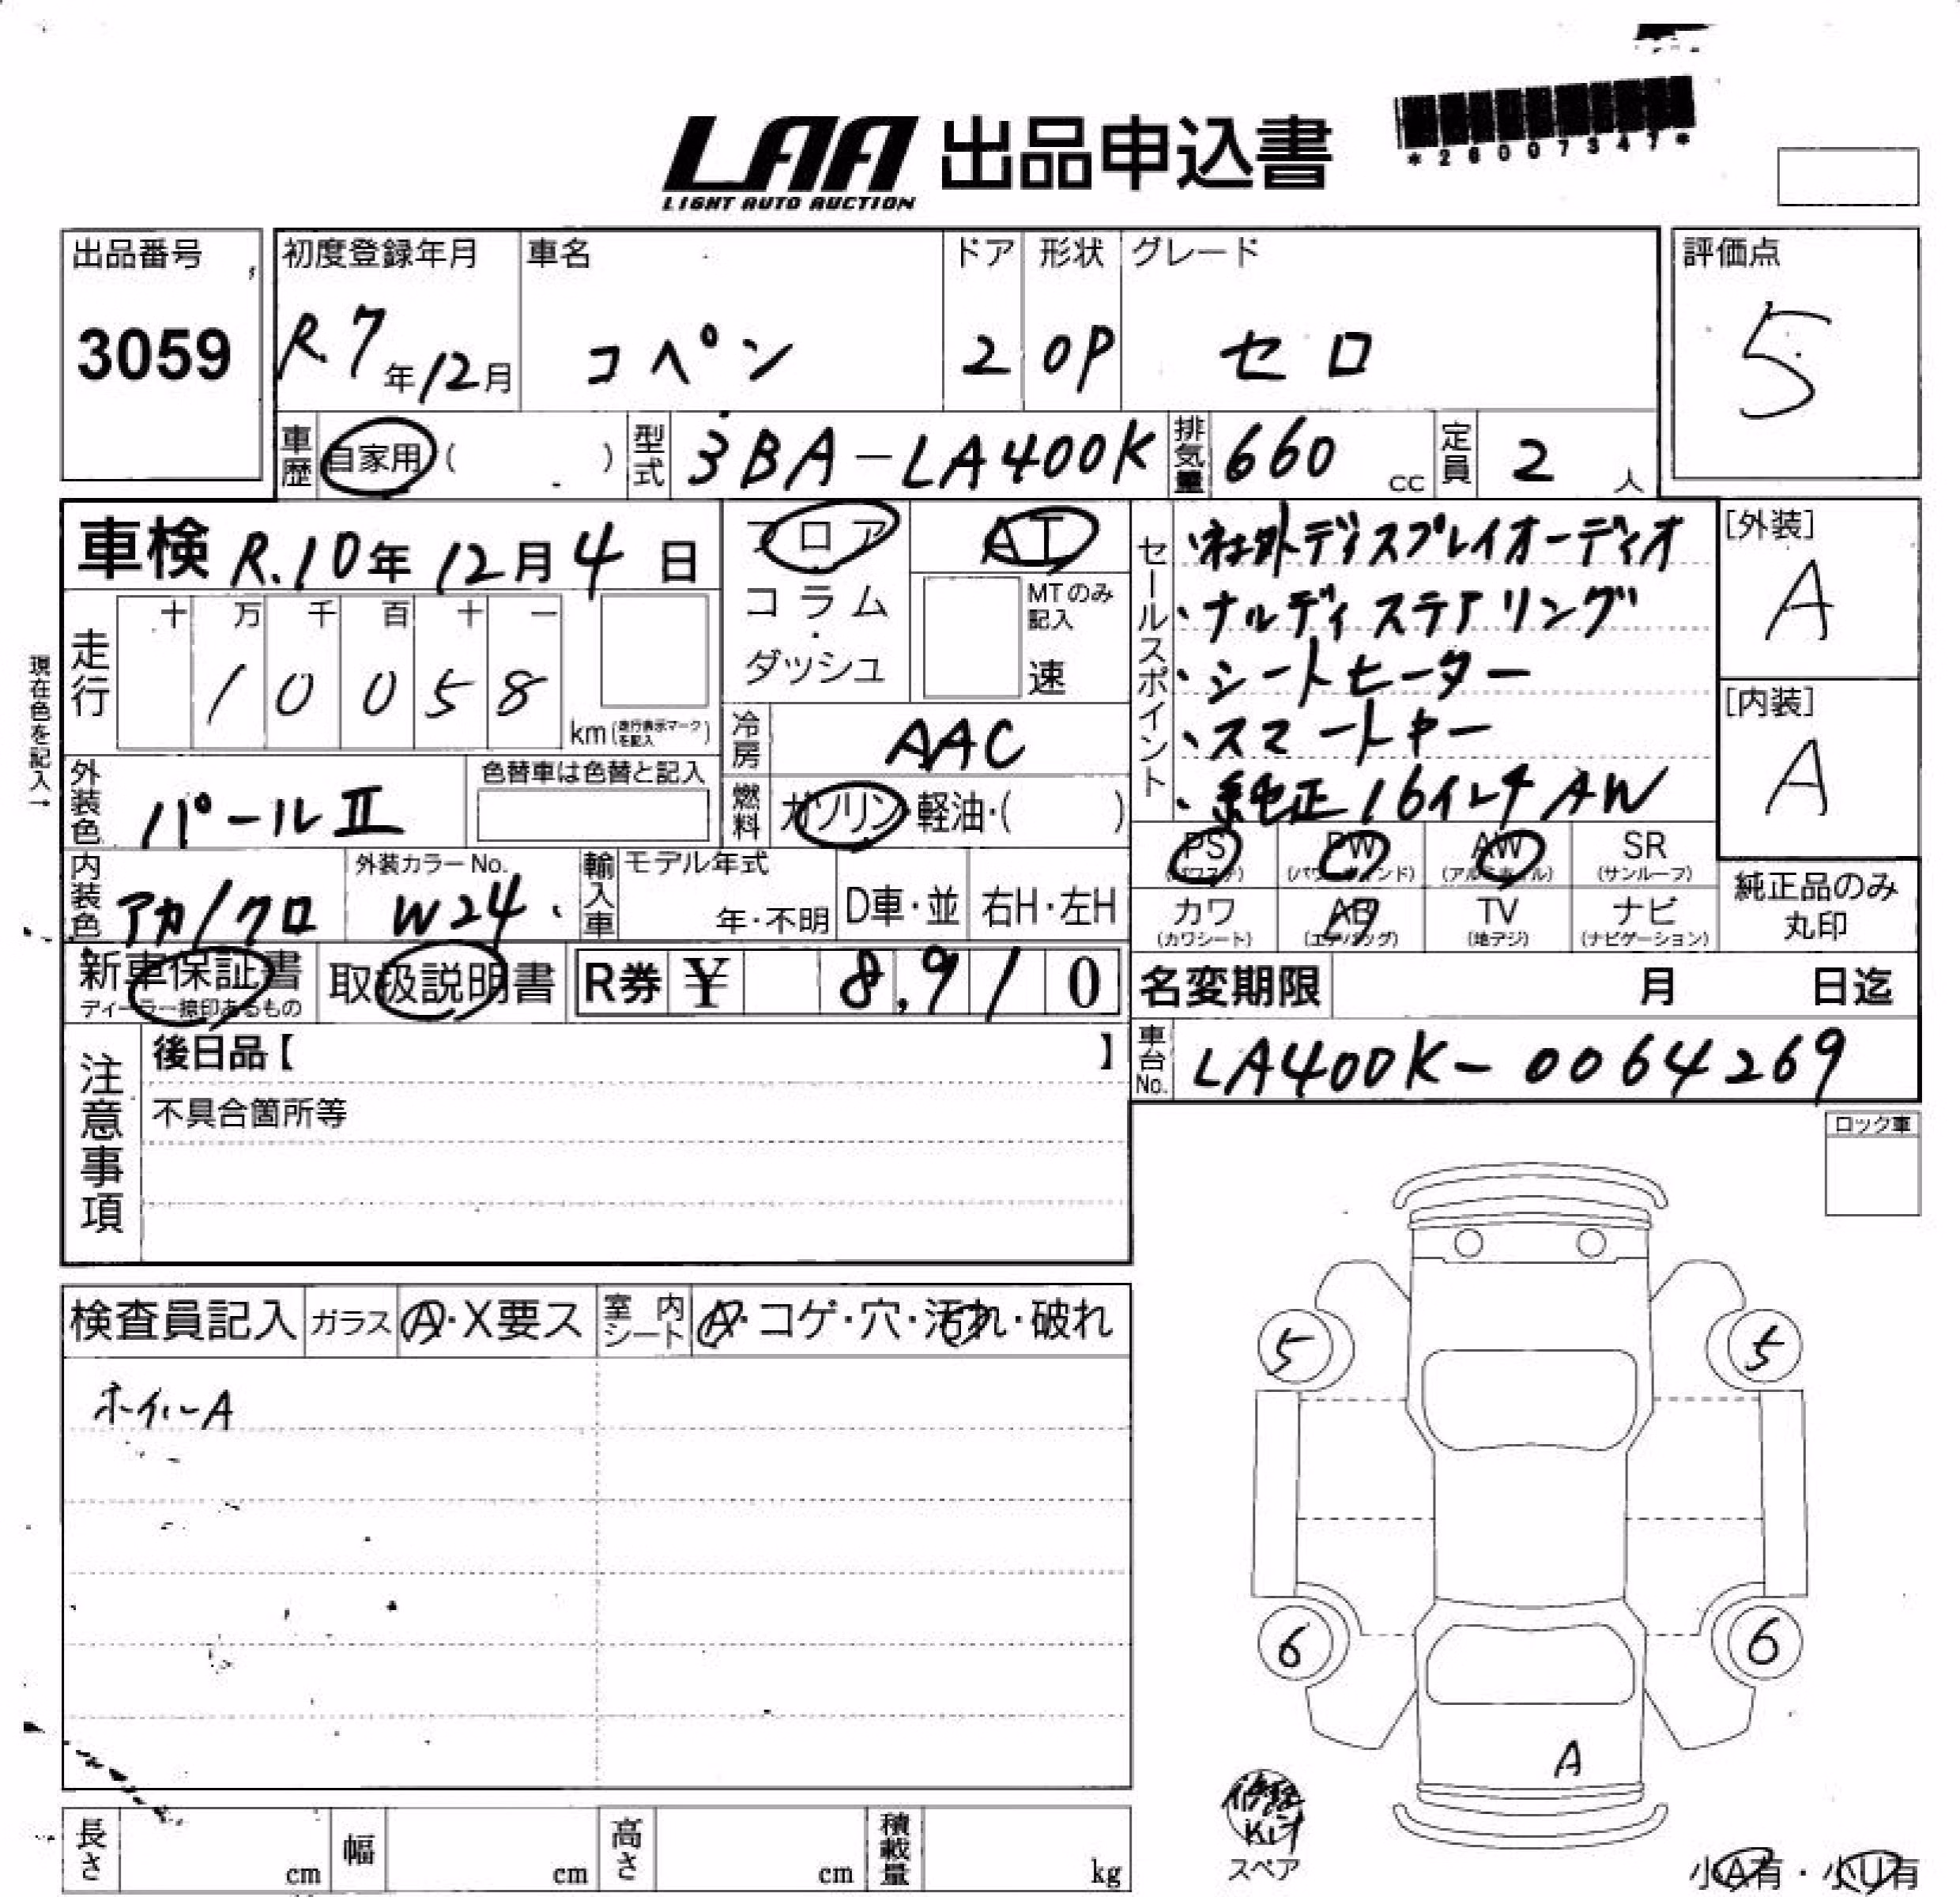 LAA 出品申込書
LIGHT AUTO AUCTION
*26007347*
出品番号
3059
初度登録年月
R.7年12月
車名
コペン
ドア
2
形状
OP
グレード
セロ
評価点
5
車歴 自家用 ( )
型式 3BA-LA400K
排気量 660 cc
定員 2 人
車検 R.10年 12月 4日
フロア
コラム
・
ダッシュ
AT
MTのみ
記入
速
セールスポイント
・社外ディスプレイオーディオ
・ナルディステアリング
・シートヒーター
・スマートキー
・純正16インチAW
[外装]
A
[内装]
A
現在色を記入→
走行
十 万 千 百 十 一
1 0 0 5 8
km (走行表示マークを記入)
冷房 AAC
燃料 ガソリン・軽油・( )
外装色 パールⅡ
色替車は色替と記入
PS (パワステ)
PW (パワーウィンド)
AW (アルミホイル)
SR (サンルーフ)
カワ (カワシート)
AB (エアバッグ)
TV (地デジ)
ナビ (ナビゲーション)
純正品のみ
丸印
内装色 アカ/クロ
外装カラーNo.
W24
輸入車
モデル年式
年・不明
D車・並
右H・左H
新車保証書
ディーラー捺印あるもの
取扱説明書
R券 ¥ 8,910
名変期限 月 日迄
車台No. LA400K-0064269
注意事項
後日品【 】
不具合箇所等
ロック車
検査員記入
ガラス A・X要ス
室内シート A・コゲ・穴・汚れ・破れ
ホイルA
5 5
6 6
A
修理
Kit
スペア
小A有・小U有
長さ cm
幅 cm
高さ cm
積載量 kg